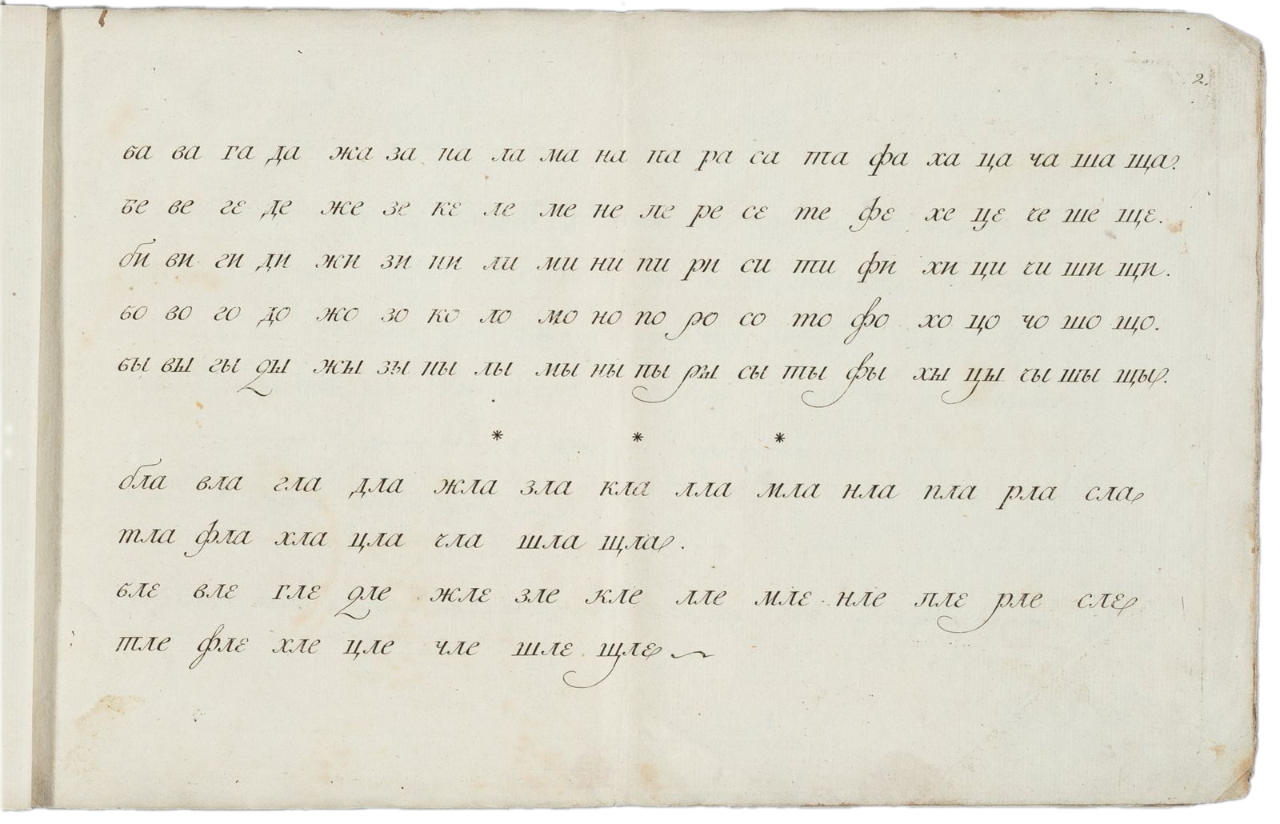 2.
ба ва га да жа за ка ла ма на па ра са та фа ха ца ча ша ща.
бе ве ге де же зе ке ле ме не пе ре се те фе хе це че ше ще.
би ви ги ди жи зи ки ли ми ни пи ри си ти фи хи ци чи ши щи.
бо во го до жо зо ко ло мо но по ро со то фо хо цо чо шо що.
бы вы гы ды жы зы кы лы мы ны пы ры сы ты фы хы цы чы шы щы.
* * *
бла вла гла дла жла зла кла лла мла нла пла рла сла
тла фла хла цла чла шла щла.
бле вле гле дле жле зле кле лле мле нле пле рле сле
тле фле хле цле чле шле щле